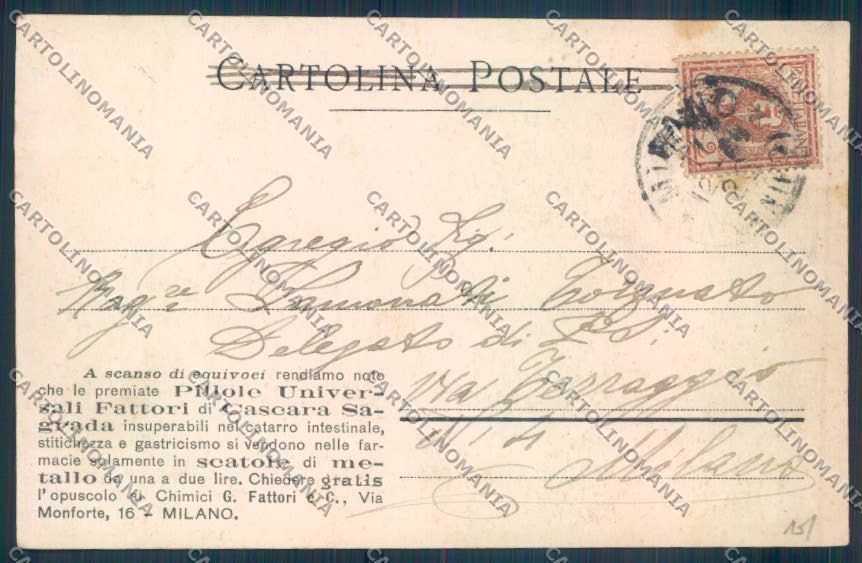 CARTOLINA POSTALE
Egregio Sig.
Rag.re Torquato
Delegato di P.S.
Via Terraggio
N. 4
Milano
A scanso di equivoci rendiamo noto
che le premiate Pillole Univer-
sali Fattori di Cascara Sa-
grada insuperabili nel catarro intestinale,
stitichezza e gastricismo si vendono nelle far-
macie solamente in scatole di me-
tallo da una a due lire. Chiedere gratis
l'opuscolo ai Chimici G. Fattori e C., Via
Monforte, 16 - MILANO.
CARTOLINOMANIA